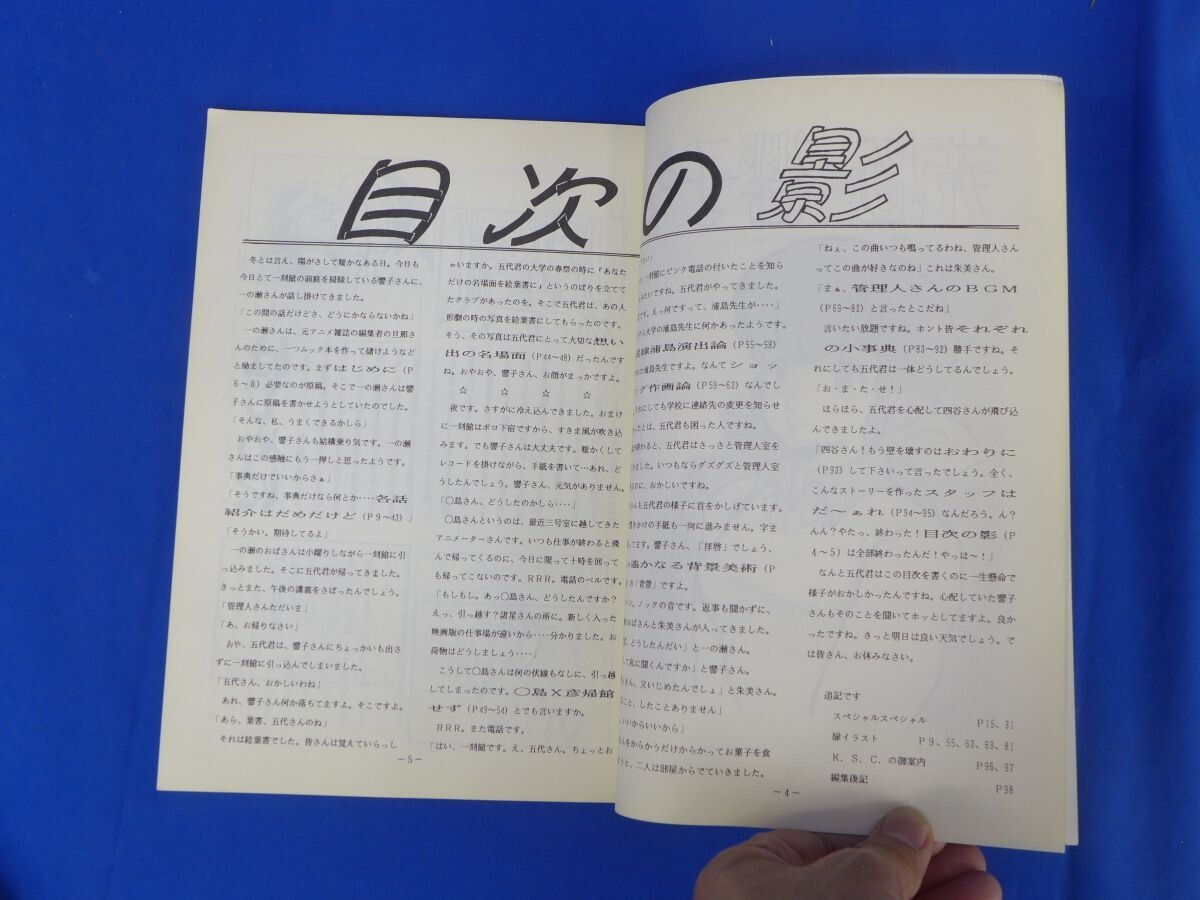 目次の影
冬とは言え、陽がさして暖かなある日。今日も
今日とて一刻館の前庭を掃除している響子さんに、
一の瀬さんが話し掛けてきました。
「この間の話だけどさ、どうにかならないかね」
一の瀬さんは、元アニメ雑誌の編集者の旦那さ
んのために、一つムック本を作って儲けようなど
と励ましてたのです。まずはじめに（P
6～8）必要なのが原稿。そこで一の瀬さんは響
子さんに原稿を書かせようとしていたのでした。
「そんな、私、うまくできるかしら」
おやおや、響子さんも結構乗り気です。一の瀬
さんはこの感触にもう一押しと思ったようです。
「事典だけでいいからさぁ」
「そうですね、事典だけなら何とか‥‥各話
紹介はだめだけど（P9～43）」
「そうかい。期待してるよ」
一の瀬のおばさんは小躍りしながら一刻館に引
っ込みました。そこに五代君が帰ってきました。
きっとまた、午後の講義をさぼったんでしょう。
「管理人さんただいま」
「あ、お帰りなさい」
おや、五代君は、響子さんにちょっかいも出さ
ずに一刻館に引っ込んでしまいました。
「五代さん、おかしいわね」
あれ、響子さん何か落ちてますよ。そこですよ。
「あら、葉書、五代さんのね」
それは絵葉書でした。皆さんは覚えていらっし
ゃいますか。五代君の大学の春祭の時に『あなた
だけの名場面を絵葉書に』というのぼりを立ててた
クラブがあったのを。そこで五代君は、あの人
形劇の時の写真を絵葉書にしてもらったのです。
そう、その写真は五代君にとって大切な想い
出の名場面（P44～48）だったんです
ね。おやおや、響子さん、お顔がまっかですよ。
☆　☆　☆　☆
夜です。さすがに冷え込んできました。おまけ
に一刻館はボロ下宿ですから、すきま風が吹き込
みます。でも響子さんは大丈夫です。暖かくして
レコードを掛けながら、手紙を書いて…あれ、ど
うしたんでしょう。響子さん、元気がありません。
「〇島さん、どうしたのかしら‥‥」
〇島さんというのは、最近三号室に越してきた
アニメーターさんです。いつも仕事が終わると飛
んで帰ってくるのに、今日に限って十時を回って
も帰ってこないのです。RRR。電話のベルです。
「もしもし。あっ〇島さん、どうしたんですか？
えっ、引っ越す？諸星さんの所に。新しく入った
映画版の仕事場が遠いから‥‥分かりました。お
荷物はどうしましょう‥‥」
こうして〇島さんは何の伏線もなしに、引っ越
してしまったのです。〇島X彦掃館
せず（P49～54）とでも言いますか。
RRR。また電話です。
「はい、一刻館です。え、五代さん。ちょっとお
－5－
刻館にピンク電話の付いたことを知ら
たいですね。五代君がやってきました。
です。えっ何ですって、浦島先生が‥‥」
ら大学の浦島先生に何かあったようです。
線浦島演出論（P55～58）
た浦島先生ですよ。なんてショッ
グ作画論（P59～62）なんでし
れにしても学校に連絡先の変更を知らせ
ったとは、五代君も困った人ですね。
が終わると、五代君はさっさと管理人室を
きました。いつもならグズグズと管理人室
るのに、おかしいですね。
さんも五代君の様子に首をかしげています。
書きかけの手紙も一向に進みません。字ま
てます。響子さん、「拝啓」でしょう、
遥かなる背景美術（P
の「背景」ですよ。
ノックの音です。返事も聞かずに、
のおばさんと朱美さんが入ってきました。
、どうしたんだい」と一の瀬さん。
して私に聞くんですか」と響子さん。
さん、又いじめたんでしょ」と朱美さん。
こと、したことありません」
いいからいいから」
さんをからかうだけからかってお菓子を食
うと、二人は部屋からでていきました。
「ねぇ、この曲いつも鳴ってるわね、管理人さん
ってこの曲が好きなのね」これは朱美さん。
「まぁ、管理人さんのBGM
（P69～82）と言ったとこだね」
言いたい放題ですね。ホント皆それぞれ
の小事典（P83～92）勝手ですね。そ
れにしても五代君は一体どうしてるんでしょう。
「お・ま・た・せ！」
ほらほら、五代君を心配して四谷さんが飛び込
んできましたよ。
「四谷さん！もう壁を壊すのはおわりに
（P93）して下さいって言ったでしょう。全く、
こんなストーリーを作ったスタッフは
だ～ぁれ（P94～95）なんだろう。ん？
んん？やたっ、終わった！目次の影（P
4～5）は全部終わったんだ！やっほ～！」
なんと五代君はこの目次を書くのに一生懸命で
様子がおかしかったんですね。心配していた響子
さんもそのことを聞いてホッとしてますよ。良か
ったですね。きっと明日は良い天気でしょう。で
は皆さん、お休みなさい。
追記です
スペシャルスペシャル　P15、31
扉イラスト　P9、55、63、69、81
K．S．C．の御案内　P96、97
編集後記　P98
－4－